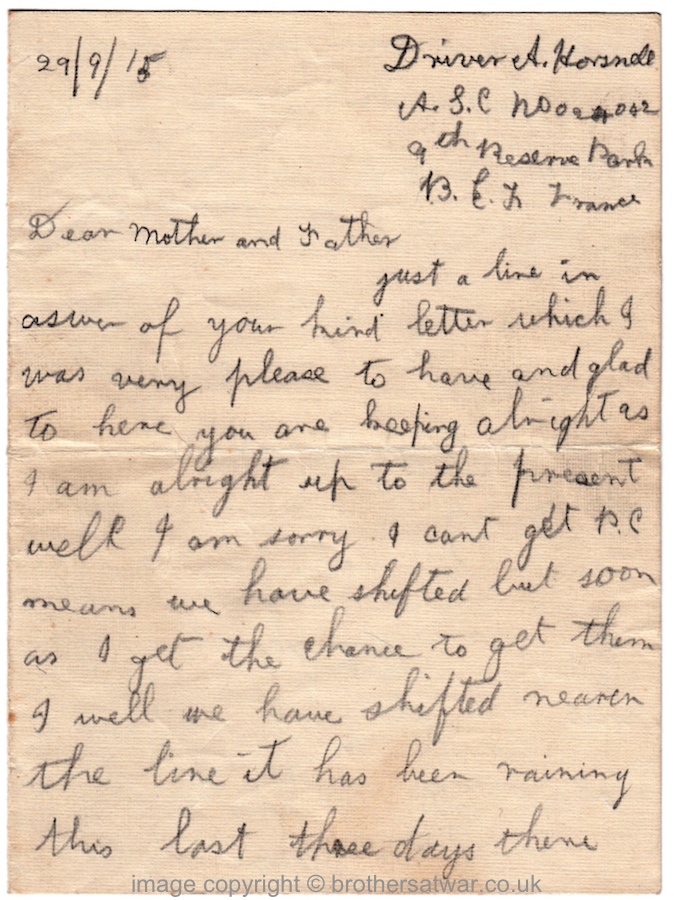 29/9/15
Driver A. Horsnell
A. S. C No 024042
9th Reserve Park
B. E. F France
Dear Mother and Father
just a line in
aswer of your kind letter which I
was very please to have and glad
to here you are keeping alright as
I am alright up to the present
well I am sorry I cant get P.C
means we have shifted but soon
as I get the chance to get them
I well we have shifted nearer
the line it has been raining
this last three days there
image copyright © brothersatwar.co.uk